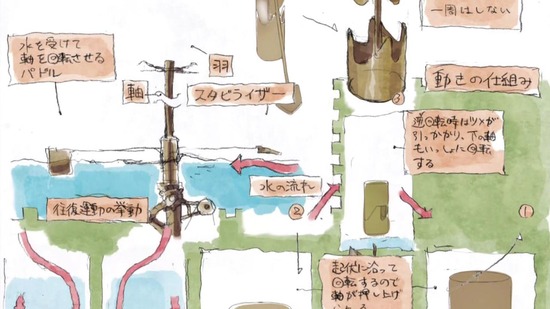 一周はしない
水を受けて
軸を回転させる
パドル
羽
軸
スタビライザー
動きの仕組み
③
逆回転時はツメが
引っかかり、下の軸
もいっしょに回転
する
水の流れ
往復運動の挙動
②
①
起伏に沿って
回転するので
軸が押し上げ